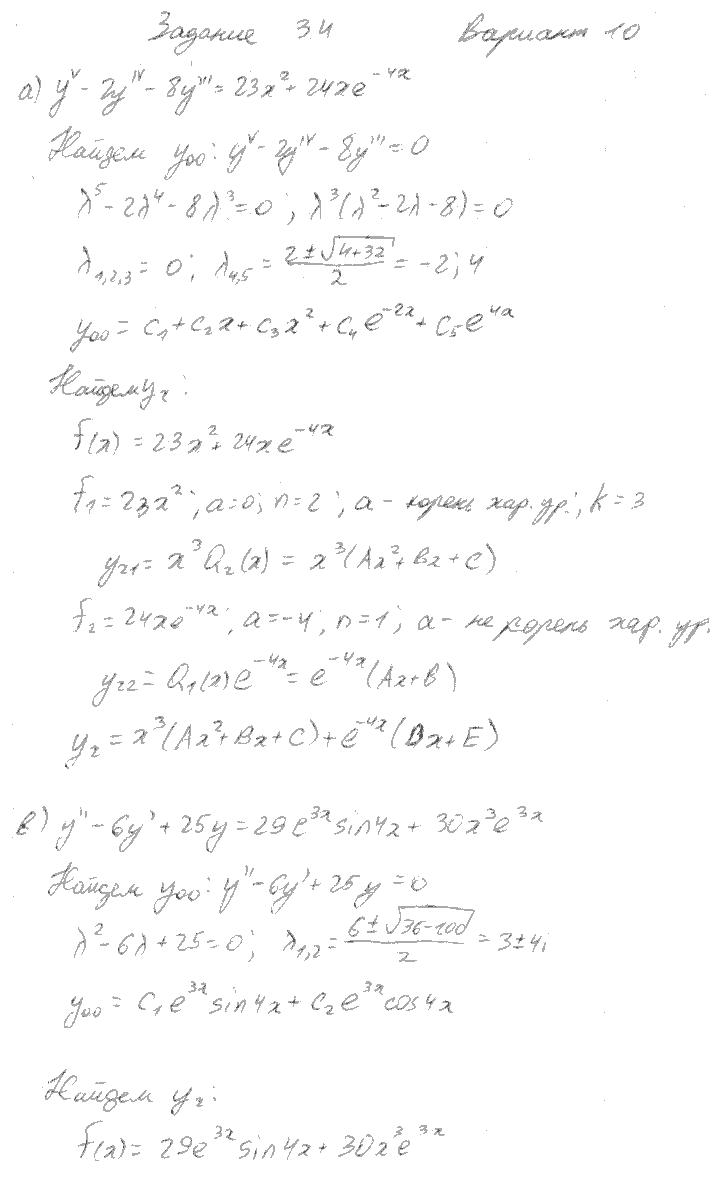 Задание 34 Вариант 10
а) yⱽ - 2yᴵⱽ - 8y''' = 23x² + 24xe⁻⁴ˣ
Найдем y₀₀: yⱽ - 2yᴵⱽ - 8y''' = 0
λ⁵ - 2λ⁴ - 8λ³ = 0 ; λ³(λ² - 2λ - 8) = 0
λ₁,₂,₃ = 0 ; λ₄,₅ = (2 ± √(4+32))/2 = -2; 4
y₀₀ = C₁ + C₂x + C₃x² + C₄e⁻²ˣ + C₅e⁴ˣ
Найдем yᵣ:
f(x) = 23x² + 24xe⁻⁴ˣ
f₁ = 23x² ; a=0; n=2 ; a - корень хар. ур.; k=3
yᵣ₁ = x³Q₂(x) = x³(Ax² + Bx + C)
f₂ = 24xe⁻⁴ˣ ; a=-4 ; n=1 ; a - не корень хар. ур.
yᵣ₂ = Q₁(x)e⁻⁴ˣ = e⁻⁴ˣ(Ax + B)
yᵣ = x³(Ax² + Bx + C) + e⁻⁴ˣ(Dx + E)
в) y'' - 6y' + 25y = 29e³ˣsin4x + 30x³e³ˣ
Найдем y₀₀: y'' - 6y' + 25y = 0
λ² - 6λ + 25 = 0 ; λ₁,₂ = (6 ± √(36-100))/2 = 3 ± 4i
y₀₀ = C₁e³ˣsin4x + C₂e³ˣcos4x
Найдем yᵣ:
f(x) = 29e³ˣsin4x + 30x³e³ˣ